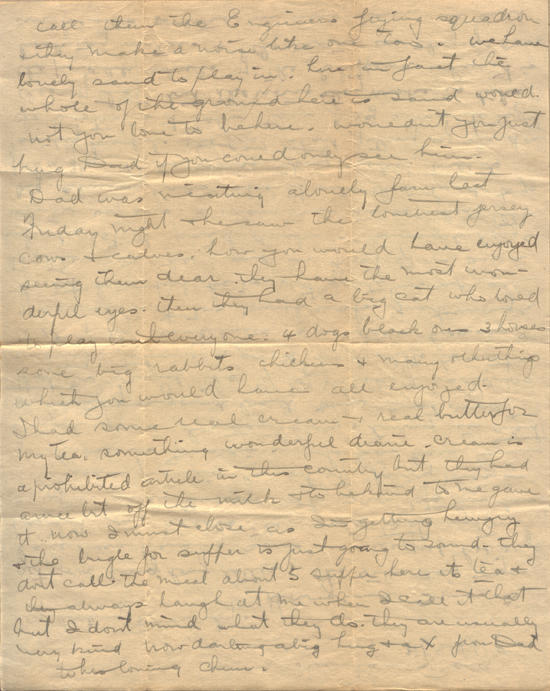 call them the Engineers flying squadron
they make a noise like one too. we have
lovely sand to play in. here in fact the
whole of the ground here is sand would
not you love to be here. wouldnt you just
hug Dad if you could only see him.
Dad was visiting a lovely farm last
Friday night & he saw the loveliest jersey
cows & calves. how you would have enjoyed
seeing them dear. they have the most won-
derful eyes. then they had a big cat who loved
to play with everyone. 4 dogs black ones 3 horses
some big rabbits chickens & many other things
which you would have all enjoyed.
I had some real cream & real butter for
my tea. something wonderful dearie. cream is
a prohibited article in this country but they had
a wee bit off the milk & to be kind to me gave
it. now I must close as I is getting hungry
& the bugle for supper is just going to sound. they
dont call the meal about 5 supper here its tea &
they always laugh at me when I call it that
but I dont mind what they do. they are usually
very kind now darling a big hug & a X from Dad
who's loving chum.